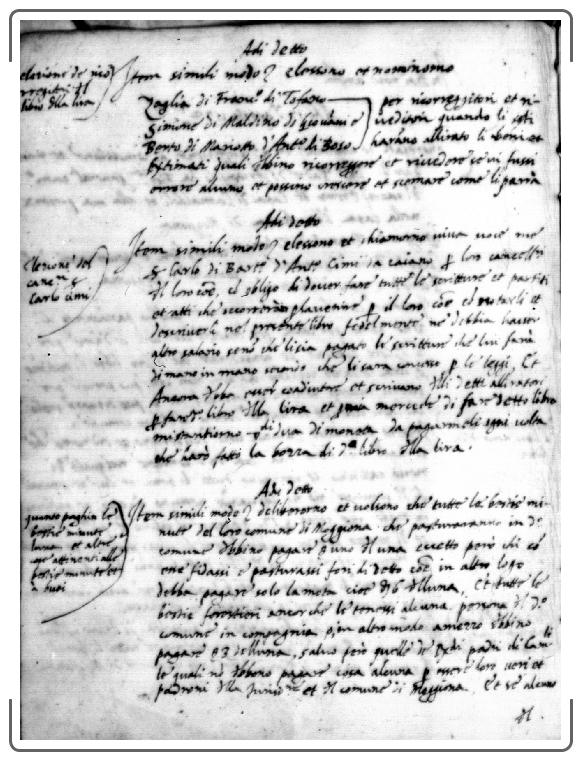 Adi detto
elezione de rico
rregitori d
libro dlla lira
Item simili modo elessono et nominorno
Taglia di Franc.º di Tofano
Simone di Maldino di Giovanni e
Berto di Mariotto d'Ant.º di Boso
per ricorreggitori et ri-
veditori quando li
harano allirato li beni et
Estimati quali debbino ricorreggere et rivedere se vi fussi
errore alcuno et possino crescere et scemare come li parrà
Adi detto
Elezione del
canc.re
Carlo Cimi
Item simili modo elessono et chiamorno viva voce me
Carlo di Bart.º d'Ant.º Cimi da caiano p loro cancell.
d loro coe, co obligo di dover fare tutte le scritture et partiti
et atti che p il loro coe et notarli et
descriverli nel presente libro fedelmente ne debbia haver
altro salario che li sia pagato le scritture che lui farà
di mano in mano secondo che li sarà concesso p le leggi, Et
Ancora debba esser coadiutore et scrivano dlli detti alliratori
p fare d.º libro dlla lira et p sua mercede di fare detto libro
di dua di moneta da pagarneli ogni volta
che harà fatti la bozza di d.º libro dlla lira.
Adi detto
quanto paghin le
bestie minute
luna et altre
cose attenenti alle
bestie minute et
a buoi
Item simili modo deliberorno et volsono che tutte le bestie mi-
nute del loro comune di Moggiona che pasturaranno in d.º
comune debbino pagare uno dl una eccetto però chi
ne fidassi e pasturassi fori di detto coe in altro logo
debba pagare solo la metà cioe dlluna, Et tutte le
bestie forestieri ancor che le tenessi alcuna persona dl d.º
comune in compagnia o p altro modo a mezzo debbino
pagare dlluna, salvo però quelle de padri di Cam.
le quali non debbono pagare cosa alcuna p essere loro veri et
padroni dlla et dl comune di Moggiona, Et se alcuno
dl